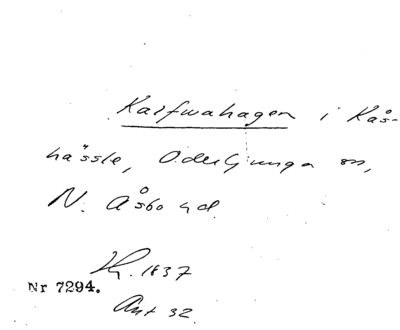 Kalfwahagen i Kås-
hässle, Oderljunga sn,
N. Åsbo hd.
Nr 7294.
1837
Ant 32